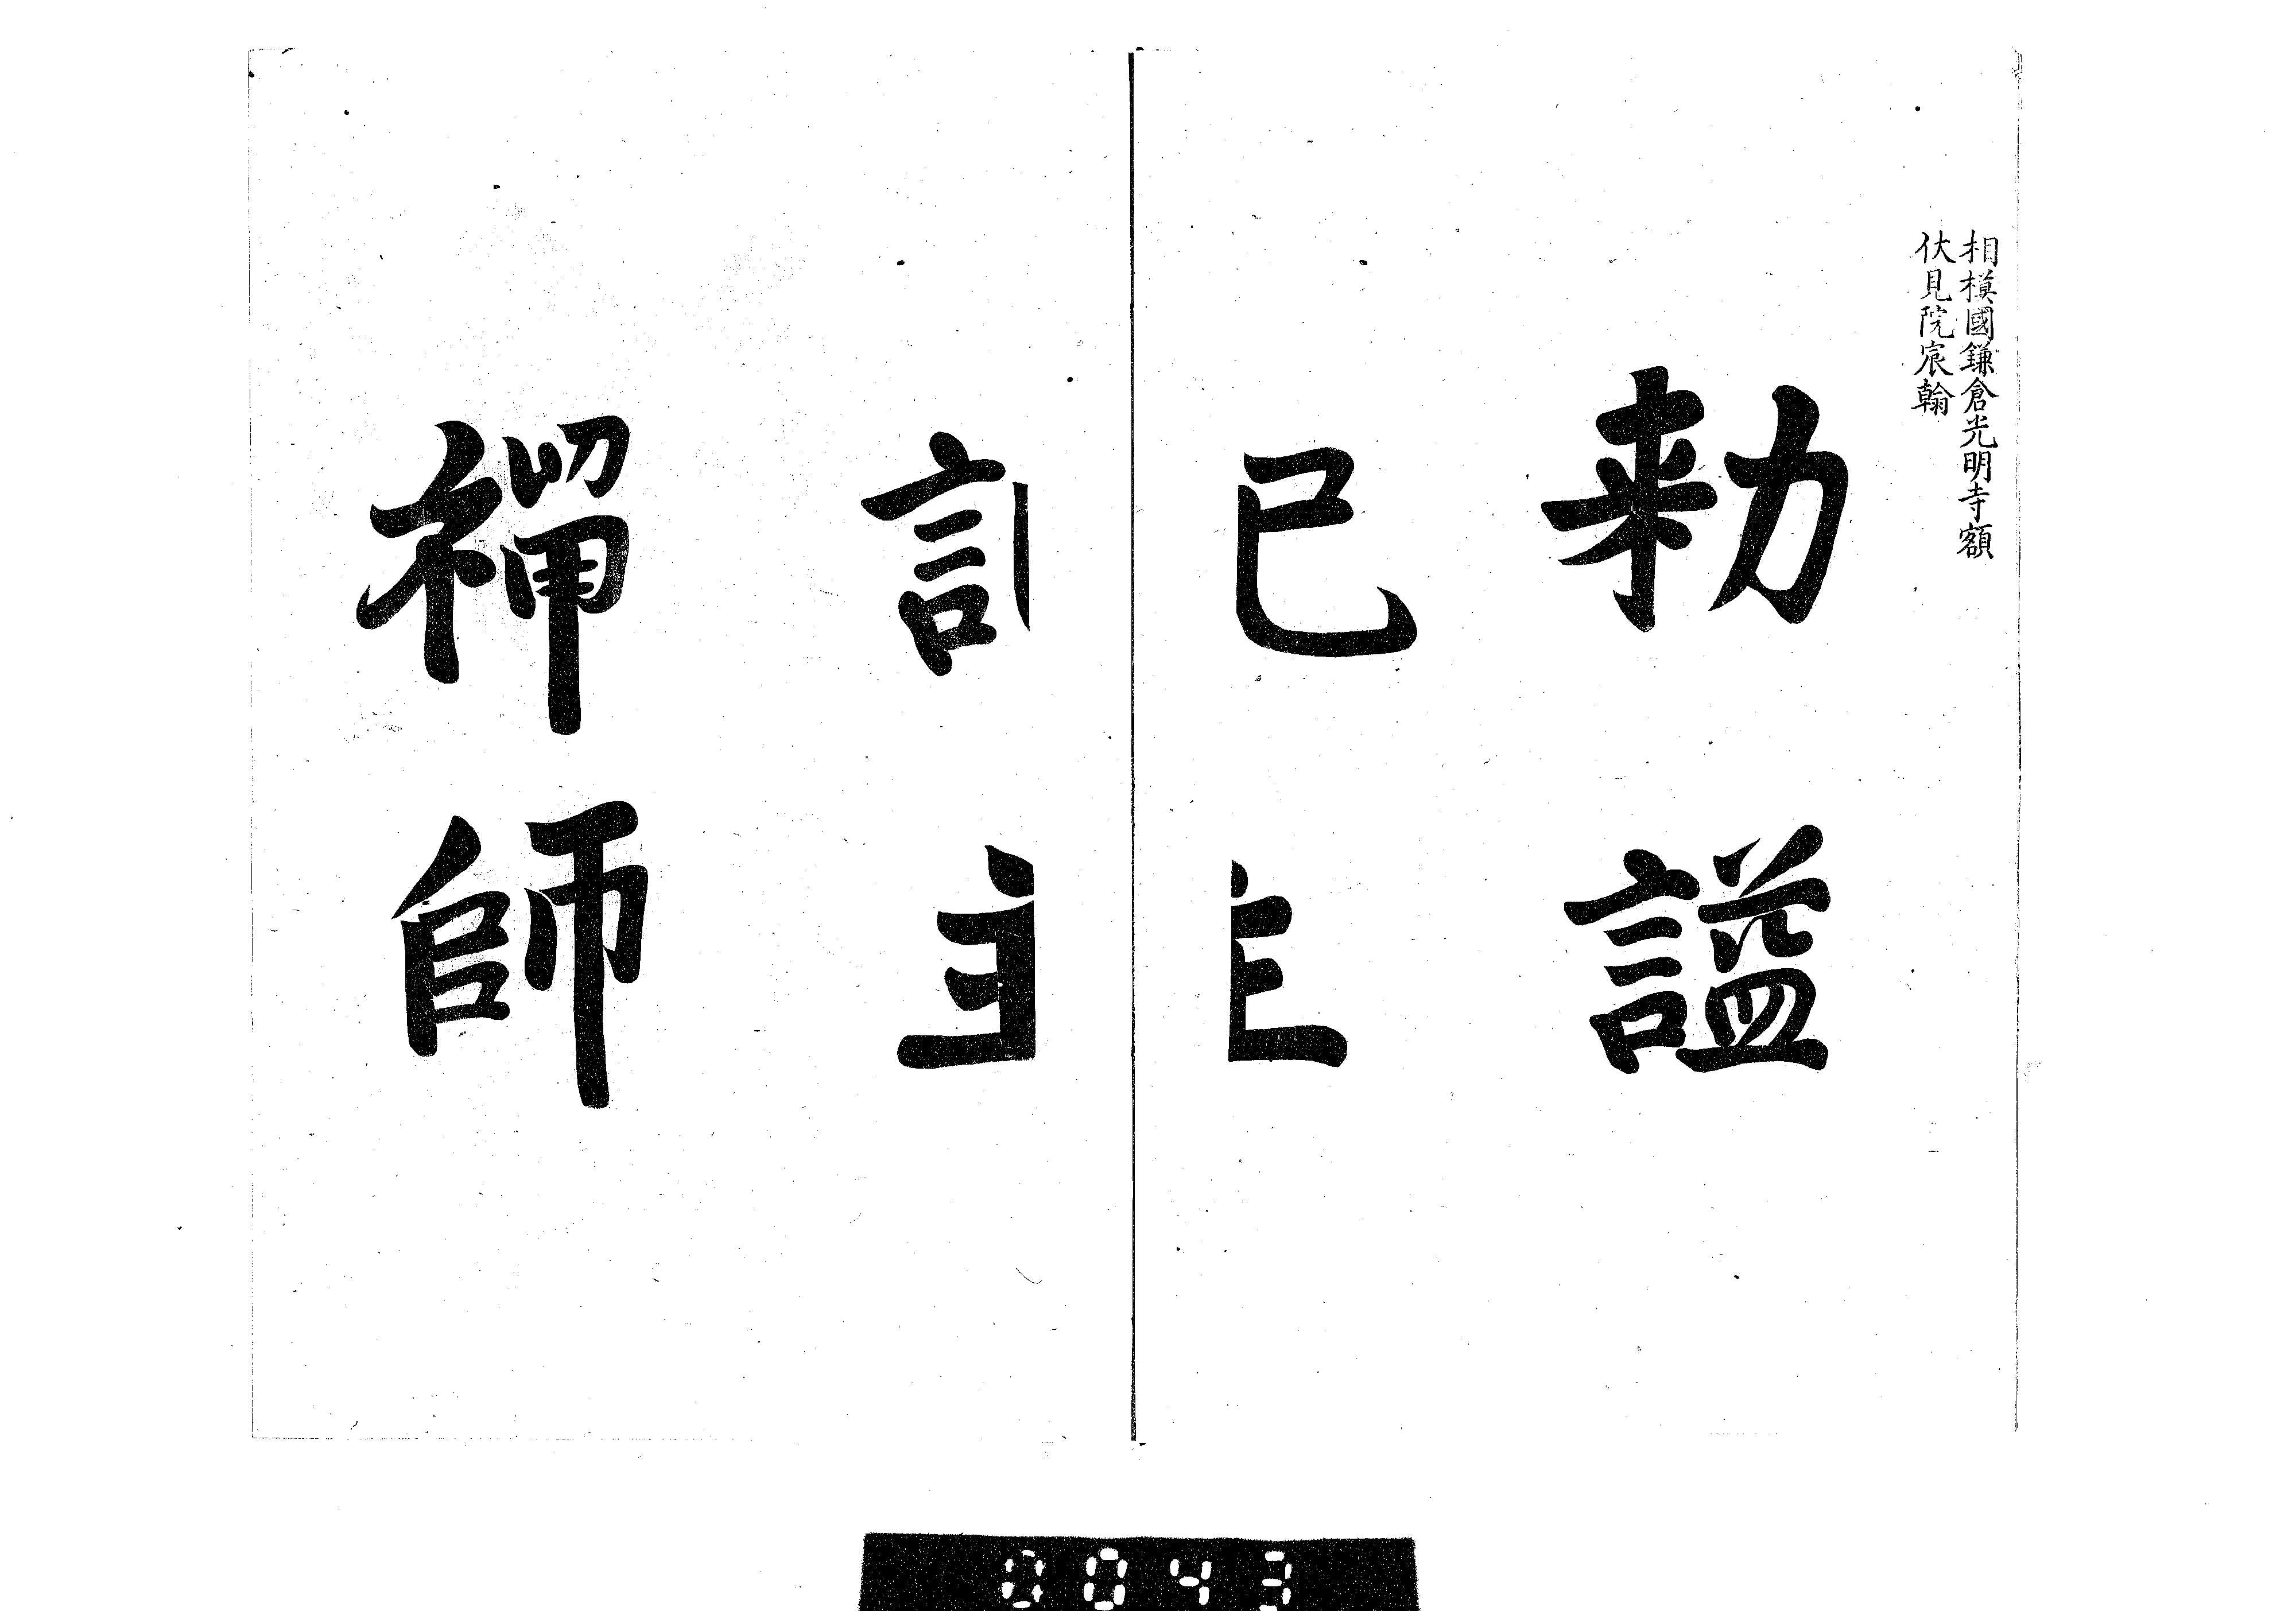 相模國鎌倉光明寺額
伏見院宸翰
勅謚
記主
禅師
0043